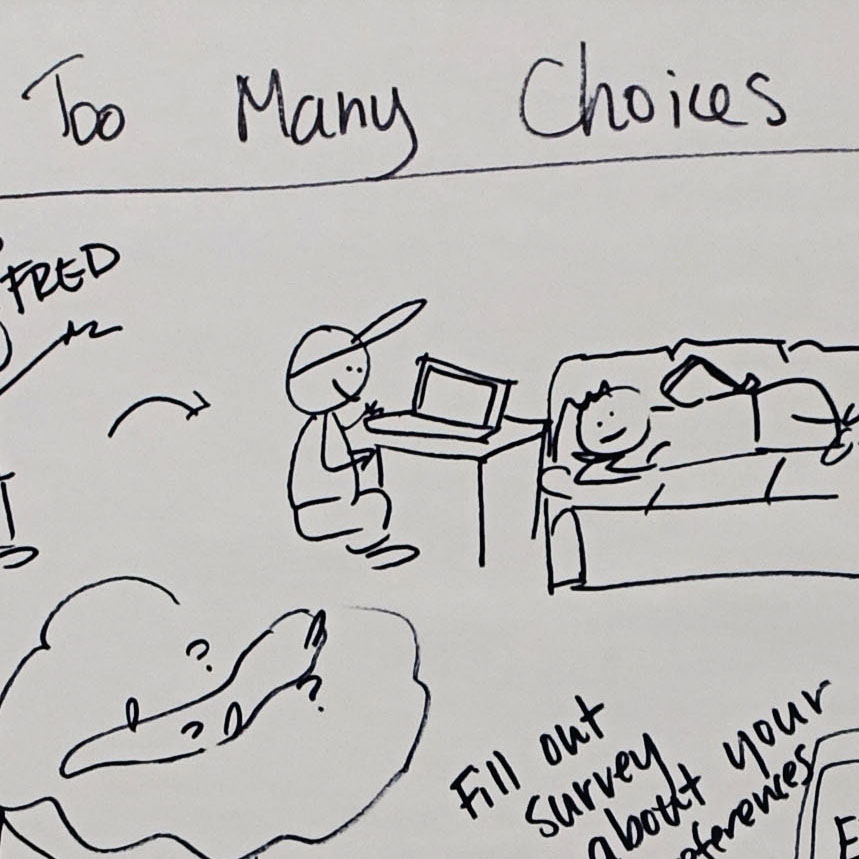 Too Many Choices
FRED
? ? ?
Fill out
survey
about your